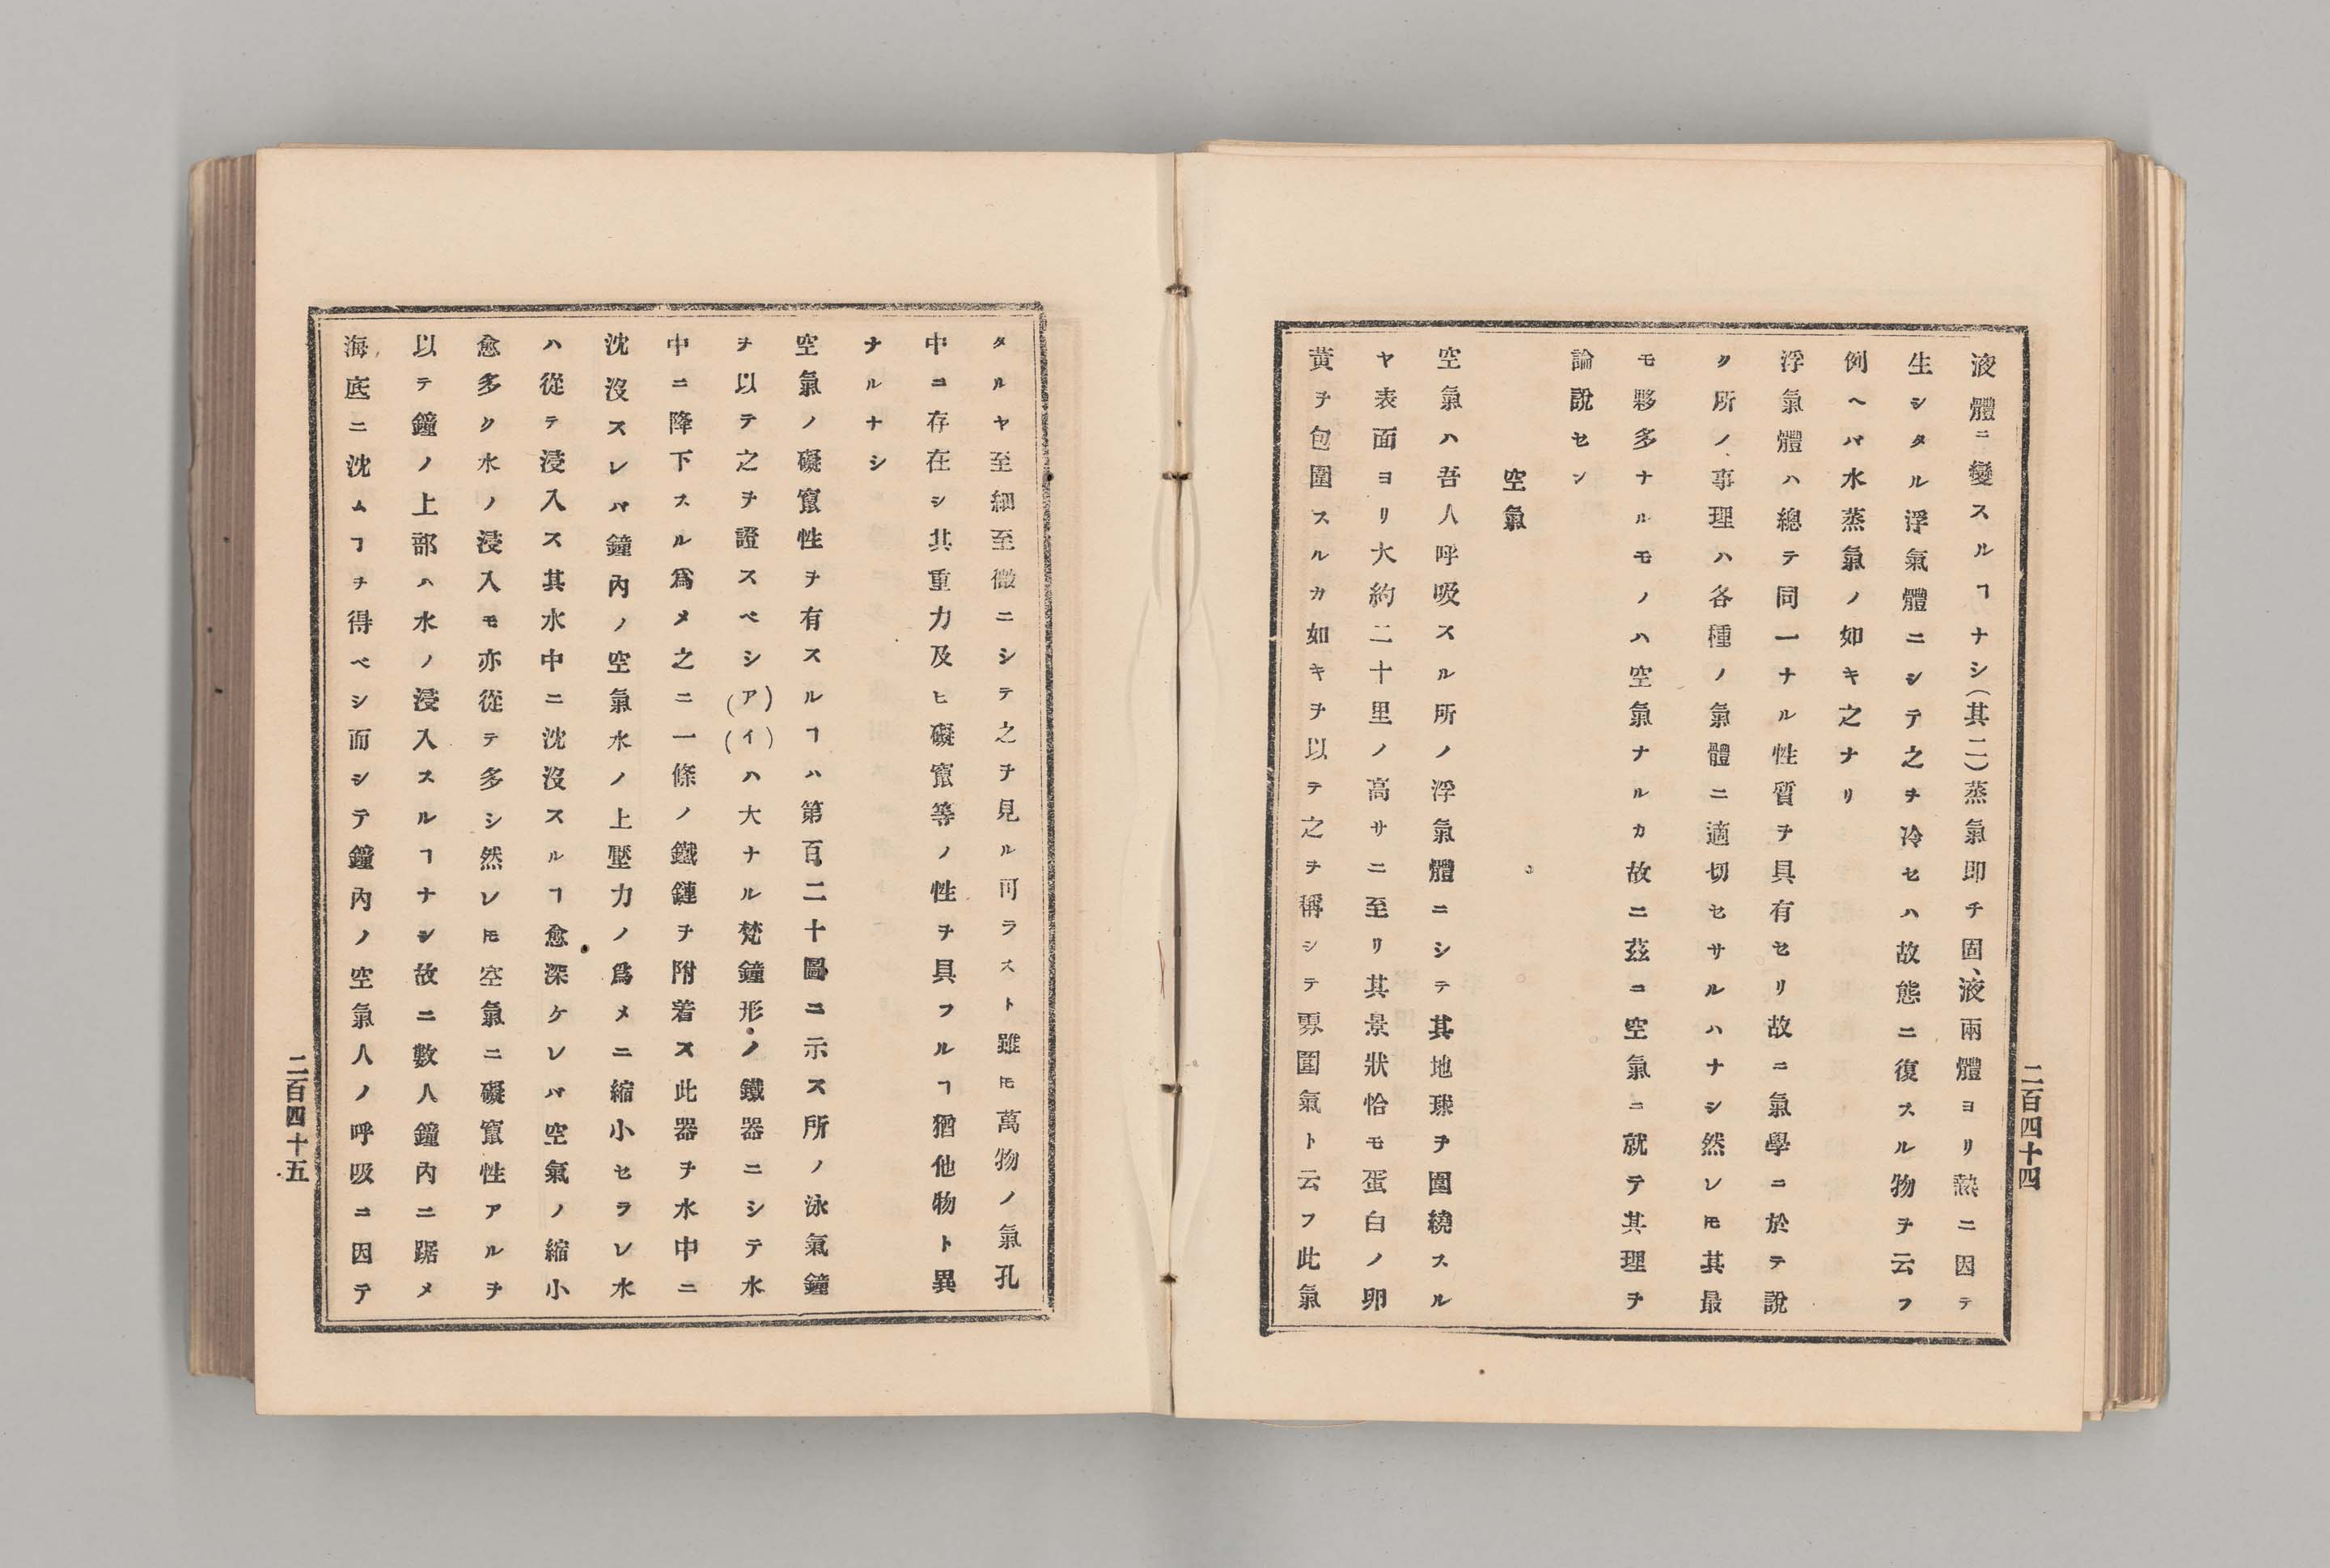 液體ニ變スルヿナシ(其二)蒸氣即チ固、液兩體ヨリ熱ニ因テ
生シタル浮氣體ニシテ之ヲ冷セハ故態ニ復スル物ヲ云フ
例ヘバ水蒸氣ノ如キ之ナリ
浮氣體ハ總テ同一ナル性質ヲ具有セリ故ニ氣學ニ於テ說
ク所ノ事理ハ各種ノ氣體ニ適切セサルハナシ然レ𪜈其最
モ夥多ナルモノハ空氣ナルカ故ニ茲ニ空氣ニ就テ其理ヲ
論說セン
空氣
空氣ハ吾人呼吸スル所ノ浮氣體ニシテ其地球ヲ圍繞スル
ヤ表面ヨリ大約二十里ノ高サニ至リ其景狀恰モ蛋白ノ卵
黃ヲ包圍スルカ如キヲ以テ之ヲ稱シテ雰圍氣ト云フ此氣
二百四十四
タルヤ至細至微ニシテ之ヲ見ル可ラスト雖𪜈萬物ノ氣孔
中ニ存在シ其重力及ヒ礙竄等ノ性ヲ具フルヿ猶他物ト異
ナルナシ
空氣ノ礙竄性ヲ有スルヿハ第百二十圖ニ示ス所ノ泳氣鐘
ヲ以テ之ヲ證スベシ(ア)(イ)ハ大ナル梵鐘形ノ鐵器ニシテ水
中ニ降下スル爲メ之ニ一條ノ鐵鏈ヲ附着ス此器ヲ水中ニ
沈沒スレバ鐘內ノ空氣水ノ上壓力ノ爲メニ縮小セラレ水
ハ從テ浸入ス其水中ニ沈沒スルヿ愈深ケレバ空氣ノ縮小
愈多ク水ノ浸入モ亦從テ多シ然レ𪜈空氣ニ礙竄性アルヲ
以テ鐘ノ上部ハ水ノ浸入スルヿナシ故ニ數人鐘內ニ踞メ
海底ニ沈ムヿヲ得ベシ而シテ鐘內ノ空氣人ノ呼吸ニ因テ
二百四十五